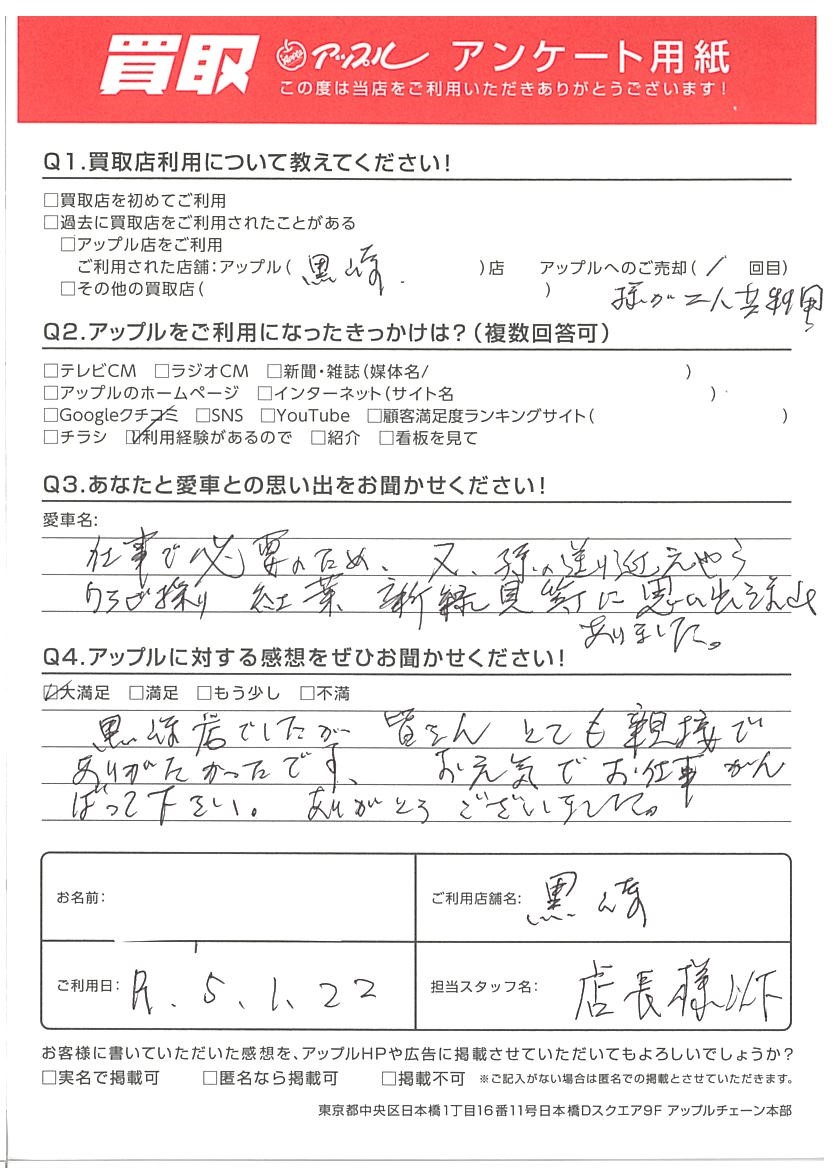 買取 アップル アンケート用紙
この度は当店をご利用いただきありがとうございます!
Q1.買取店利用について教えてください!
□買取店を初めてご利用
□過去に買取店をご利用されたことがある
□アップル店をご利用
ご利用された店舗:アップル( 黒崎. )店 アップルへのご売却( / 回目)
□その他の買取店( )
孫が二人共利用
Q2.アップルをご利用になったきっかけは?(複数回答可)
□テレビCM □ラジオCM □新聞・雑誌(媒体名/ )
□アップルのホームページ □インターネット(サイト名 )
□Googleクチコミ □SNS □YouTube □顧客満足度ランキングサイト( )
□チラシ ☑利用経験があるので □紹介 □看板を見て
Q3.あなたと愛車との思い出をお聞かせください!
愛車名:
仕事で必要のため、又、孫の送り迎えやら
紅葉 新緑見等に思い出沢山
ありました。
Q4.アップルに対する感想をぜひお聞かせください!
☑大満足 □満足 □もう少し □不満
黒崎店でしたが 皆さん とても親接で
ありがたかったです、 お元気でお仕事がん
ばって下さい。 ありがとう ございました。
お名前:
ご利用店舗名: 黒崎
ご利用日: R. 5. 1. 22
担当スタッフ名: 店長様以下
お客様に書いていただいた感想を、アップルHPや広告に掲載させていただいてもよろしいでしょうか?
□実名で掲載可 □匿名なら掲載可 □掲載不可 ※ご記入がない場合は匿名での掲載とさせていただきます。
東京都中央区日本橋1丁目16番11号日本橋Dスクエア9F アップルチェーン本部